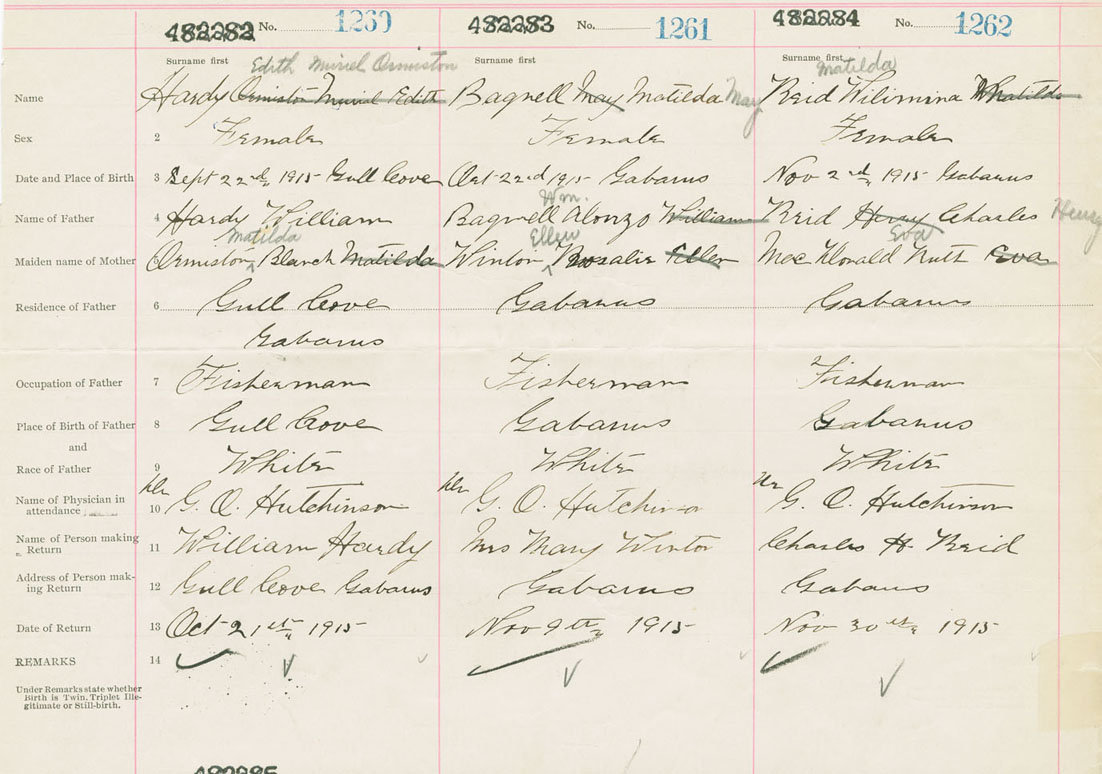 482282 No. 1260 482283 No. 1261 482284 No. 1262
Surname first Edith Muriel Ormiston Surname first Surname first Matilda
Name Hardy Ormiston Muriel Edith Bagnell May Matilda May Reid Wilimina Matilda
Sex 2 Female Female Female
Date and Place of Birth 3 Sept 22nd, 1915 Gull Cove Oct 22nd 1915 Gabarus Nov 2nd, 1915 Gabarus
Wm.
Name of Father 4 Hardy William Bagnell Alonzo William Reid Henry Charles Henry
Matilda Ellen Eva
Maiden name of Mother Ormiston Blanch Matilda Winton Rosalie Ellen Mac Donald Nutt Eva
Residence of Father 6 Gull Cove Gabarus Gabarus
Gabarus
Occupation of Father 7 Fisherman Fisherman Fisherman
Place of Birth of Father 8 Gull Cove Gabarus Gabarus
and
Race of Father 9 White White White
Name of Physician in
attendance 10 G. O. Hutchinson G. O. Hutchinson G. O. Hutchinson
Name of Person making
Return 11 William Hardy Mrs Mary Winton Charles H. Reid
Address of Person mak-
ing Return 12 Gull Cove Gabarus Gabarus Gabarus
Date of Return 13 Oct 21st, 1915 Nov 9th, 1915 Nov 30th, 1915
REMARKS 14
Under Remarks state whether
Birth is Twin, Triplet Ille-
gitimate or Still-birth.